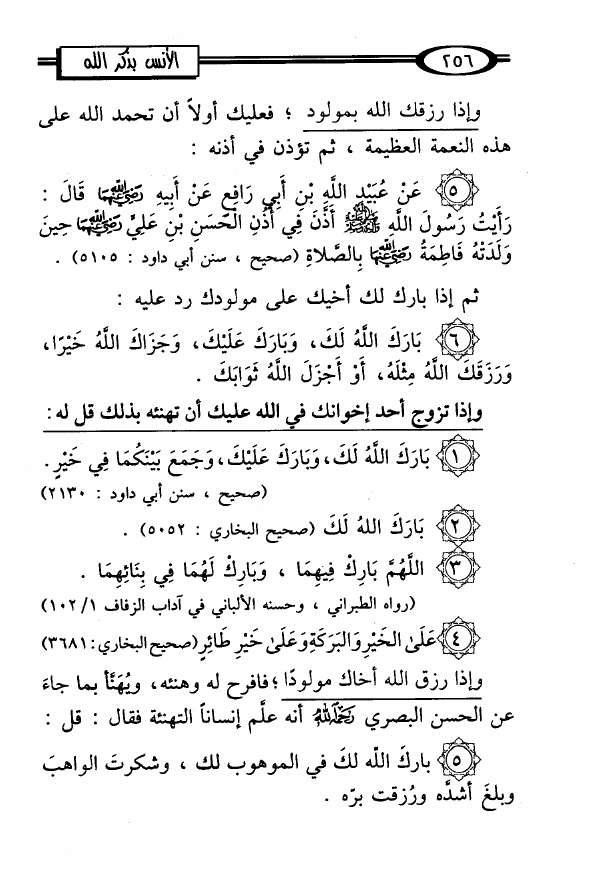 ٢٥٦
الأنس بذكر الله
وإذا رزقك الله بمولود ؛ فعليك أولاً أن تحمد الله على
هذه النعمة العظيمة ، ثم تؤذن في أذنه :
٥ عَنْ عُبَيْدِ اللَّهِ بْنِ أَبِي رَافِعٍ عَنْ أَبِيهِ رَضِيَ اللَّهُ عَنْهُمَا قَالَ :
رَأَيْتُ رَسُولَ اللَّهِ ﷺ أَذَّنَ فِي أُذُنِ الْحَسَنِ بْنِ عَلِيٍّ رَضِيَ اللَّهُ عَنْهُمَا حِينَ
وَلَدَتْهُ فَاطِمَةُ رَضِيَ اللَّهُ عَنْهَا بِالصَّلَاةِ (صحيح ، سنن أبي داود : ٥١٠٥) .
ثم إذا بارك لك أخيك على مولودك رد عليه :
٦ بَارَكَ اللَّهُ لَكَ، وَبَارَكَ عَلَيْكَ، وَجَزَاكَ اللَّهُ خَيْرًا،
وَرَزَقَكَ اللَّهُ مِثْلَهُ، أَوْ أَجْزَلَ اللَّهُ ثَوَابَكَ .
وإذا تزوج أحد إخوانك في الله عليك أن تهنئه بذلك قل له :
١ بَارَكَ اللَّهُ لَكَ، وَبَارَكَ عَلَيْكَ، وَجَمَعَ بَيْنَكُمَا فِي خَيْرٍ.
(صحيح ، سنن أبي داود : ٢١٣٠)
٢ بَارَكَ اللهُ لَكَ (صحيح البخاري : ٥٠٥٢) .
٣ اللَّهُمَّ بَارِكْ فِيهِمَا ، وَبَارِكْ لَهُمَا فِي بِنَائِهِمَا .
(رواه الطبراني ، وحسنه الألباني في آداب الزفاف ١٠٢/١)
٤ عَلَى الخَيْرِ وَالبَرَكَةِ وَعَلَى خَيْرِ طَائِرٍ (صحيح البخاري : ٣٦٨١)
وإذا رزق الله أخاك مولودًا ؛ فافرح له وهنئه، ويُهَنَّأ بما جاءَ
عن الحسن البصري رَحِمَهُ اللَّهُ أنه علَّم إنساناً التهنئة فقال : قل :
٥ باركَ اللّه لكَ في الموهوب لك ، وشكرتَ الواهبَ
وبلغَ أشدَّه ورُزقت برّه .